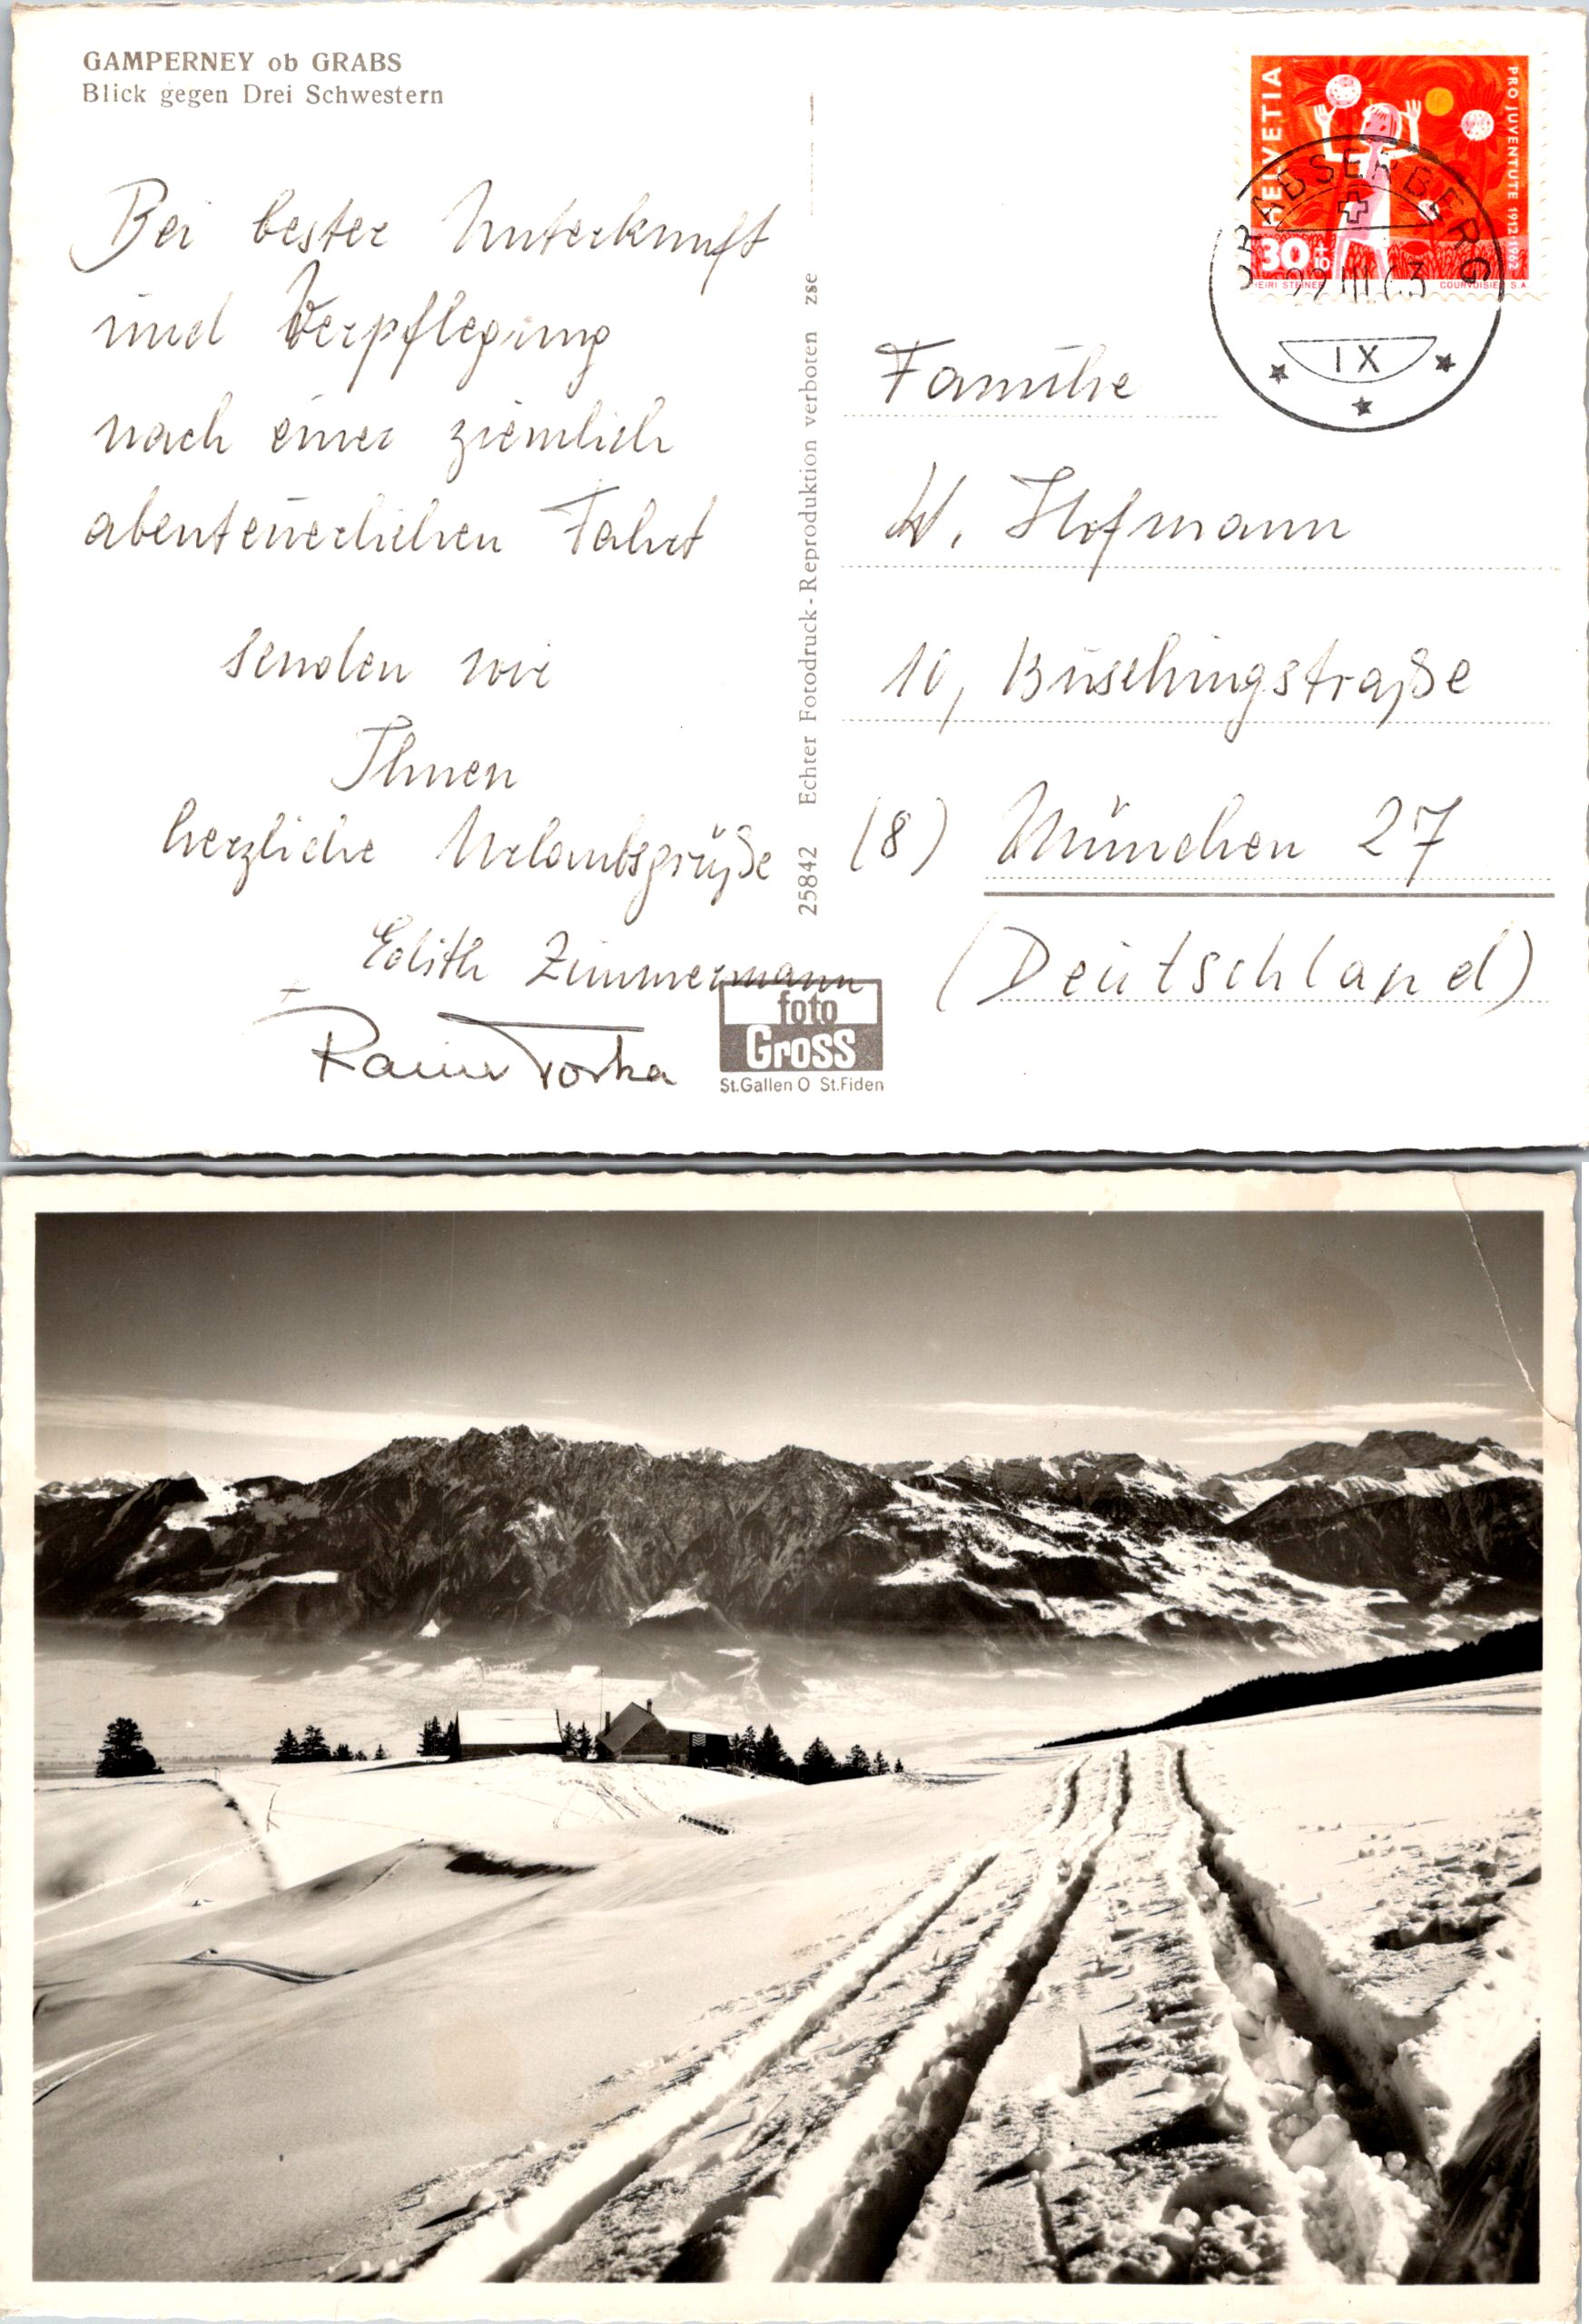 GAMPERNEY ob GRABS
Blick gegen Drei Schwestern
Bei bester Unterkunft
und Verpflegung
nach einer ziemlich
abenteuerlichen Fahrt
senden wir
Ihnen
herzliche Urlaubsgrüße
Edith Zimmermann
Rainer Torka
25842 Echter Fotodruck - Reproduktion verboten zse
foto
Gross
St.Gallen O St.Fiden
HELVETIA
PRO JUVENTUTE 1912-1962
30+10
HEIRI STEINER COURVOISIER S.A.
GRABSERBERG
22.III.63
IX
Familie
W. Hofmann
10, Büschingstraße
(8) München 27
(Deutschland)